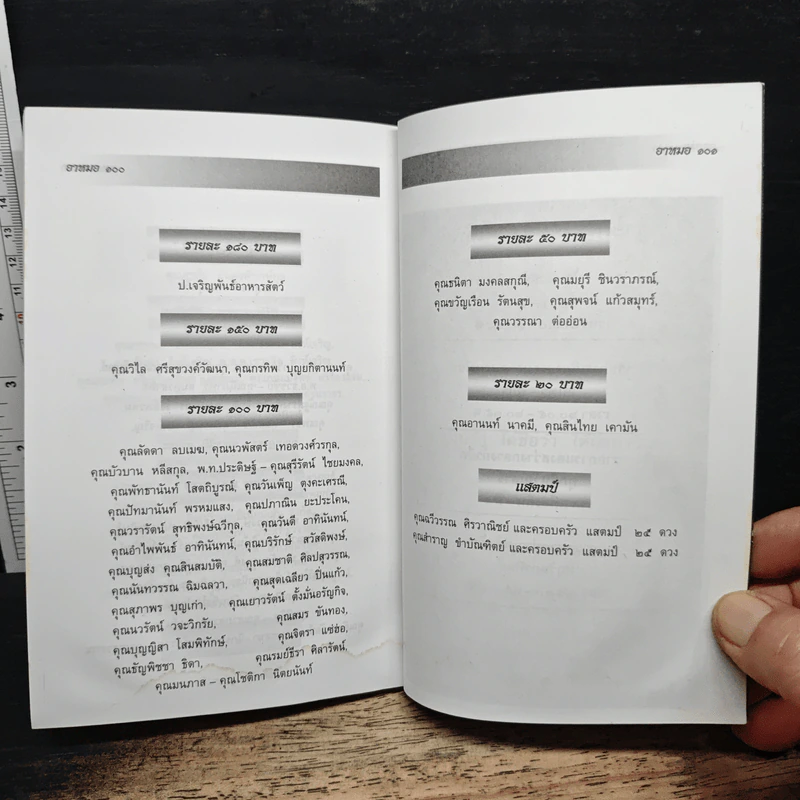 อาหมอ ๑๐๐
รายละ ๑๘๐ บาท
ป.เจริญพันธ์อาหารสัตว์
รายละ ๑๕๐ บาท
คุณวิไล ศรีสุขวงค์วัฒนา, คุณกรทิพ บุญยกิตานนท์
รายละ ๑๐๐ บาท
คุณลัดดา ลบเมฆ, คุณนวพัสตร์ เทอดวงศ์วรกุล,
คุณบัวบาน หลีสกุล, พ.ท.ประดิษฐ์ – คุณสุรีรัตน์ ไชยมงคล,
คุณพัทธานันท์ โสตถิบูรณ์, คุณวันเพ็ญ ตุงคะเศรณี,
คุณปัทมานันท์ พรหมแสง, คุณปภาณิน ยะประโคน,
คุณวรารัตน์ สุทธิพงษ์ฉวีกุล, คุณวันดี อาทินันทน์,
คุณอำไพพันธ์ อาทินันทน์, คุณบริรักษ์ สวัสดิพงษ์,
คุณบุญส่ง คุณสินสมบัติ, คุณสมชาติ ศิลปสุวรรณ,
คุณนันทวรรณ ฉิมฉลวา, คุณสุดเฉลียว ปิ่นแก้ว,
คุณสุภาพร บุญเก่า, คุณเยาวรัตน์ ตั้งมั่นอรัญกิจ,
คุณนวรัตน์ วจะวิกรัย, คุณสมร ขันทอง,
คุณบุญญิสา โสมพิทักษ์, คุณจิตรา แซ่ฮ่อ,
คุณธัญพิชชา ธิดา, คุณรมย์ธีรา คิลารัตน์,
คุณมนภาส – คุณโชติกา นิตยนันท์
อาหมอ ๑๐๑
รายละ ๕๐ บาท
คุณธนิตา มงคลสกุณี, คุณมยุรี ชินวราภรณ์,
คุณขวัญเรือน รัตนสุข, คุณสุพจน์ แก้วสมุทร์,
คุณวรรณา ต่ออ่อน
รายละ ๒๐ บาท
คุณอานนท์ นาคมี, คุณสินไทย เคามัน
แสตมป์
คุณฉวีวรรณ ศิรวาณิชย์ และครอบครัว แสตมป์ ๒๕ ดวง
คุณสำราญ ขำบัณฑิตย์ และครอบครัว แสตมป์ ๒๕ ดวง
3
2